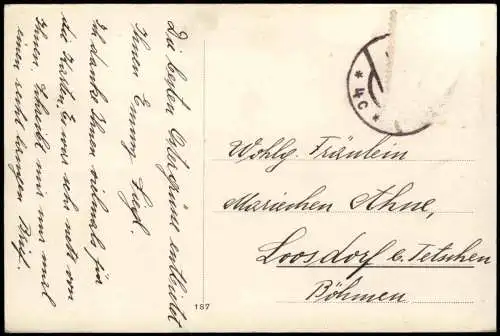 Die besten Ostergrüße entbietet
Ihnen Emmy
Ich danke Ihnen vielmals für
die Karten. Es war sehr nett von
Ihnen. Schreibt mir nur mal
einen recht langen Brief.
* 4c *
Wohlg. Fräulein
Mariechen Ahne,
Loosdorf b. Tetschen
Böhmen
187